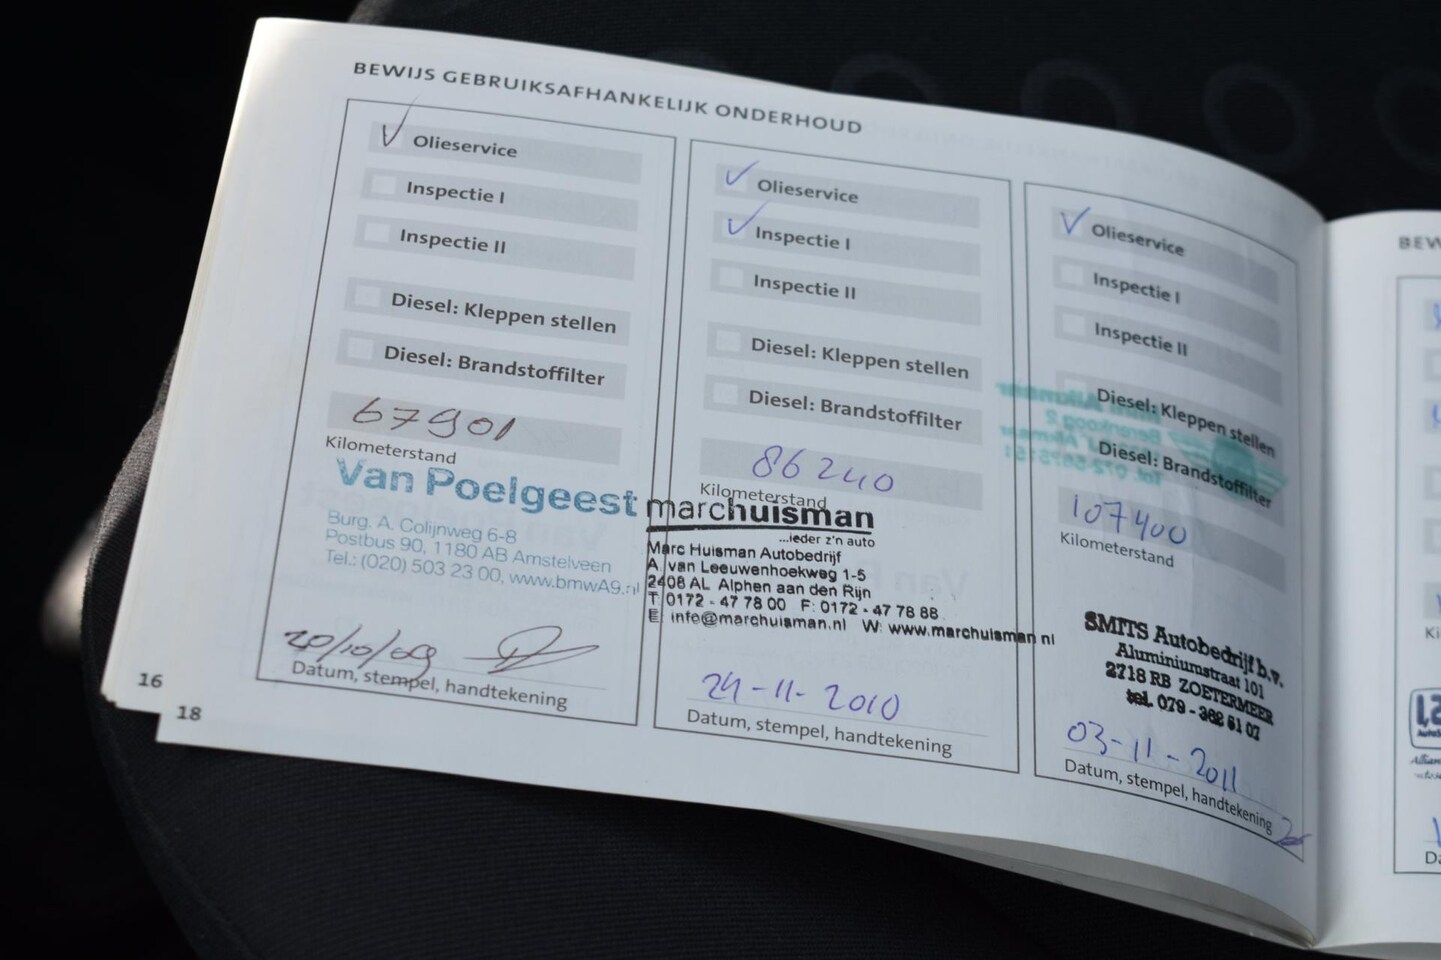 BEWIJS GEBRUIKSAFHANKELIJK ONDERHOUD
Olieservice
Inspectie I
Inspectie II
Diesel: Kleppen stellen
Diesel: Brandstoffilter
67901
Kilometerstand
Van Poelgeest
Burg. A. Colijnweg 6-8
Postbus 90, 1180 AB Amstelveen
Tel.: (020) 503 23 00, www.bmwA9.nl
20/10/09
Datum, stempel, handtekening
16
18
Olieservice
Inspectie I
Inspectie II
Diesel: Kleppen stellen
Diesel: Brandstoffilter
86240
Kilometerstand
marchuisman
...ieder z'n auto
Marc Huisman Autobedrijf
A. van Leeuwenhoekweg 1-5
2408 AL Alphen aan den Rijn
T: 0172 - 47 78 00 F: 0172 - 47 78 88
E: info@marchuisman.nl W: www.marchuisman nl
24-11-2010
Datum, stempel, handtekening
Olieservice
Inspectie I
Inspectie II
Diesel: Kleppen stellen
Diesel: Brandstoffilter
107400
Kilometerstand
SMITS Autobedrijf b.v.
Aluminiumstraat 101
2718 RB ZOETERMEER
tel. 079 - 362 61 07
03-11-2011
Datum, stempel, handtekening
BEW